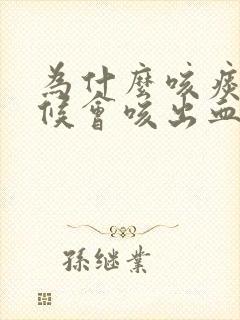 为什麼咳痰
候會咳出血
孫继業